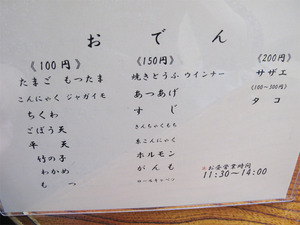 おでん
《100円》
たまご もつたま
こんにゃく ジャガイモ
ちくわ
ごぼう天
平天
竹の子
わかめ
もつ
《150円》
焼きどうふ ウインナー
あつあげ
すじ
きんちゃくもち
糸こんにゃく
ホルモン
がんも
ロールキャベツ
《200円》
サザエ
(100~300円)
タコ
※お昼営業時間
11:30~14:00